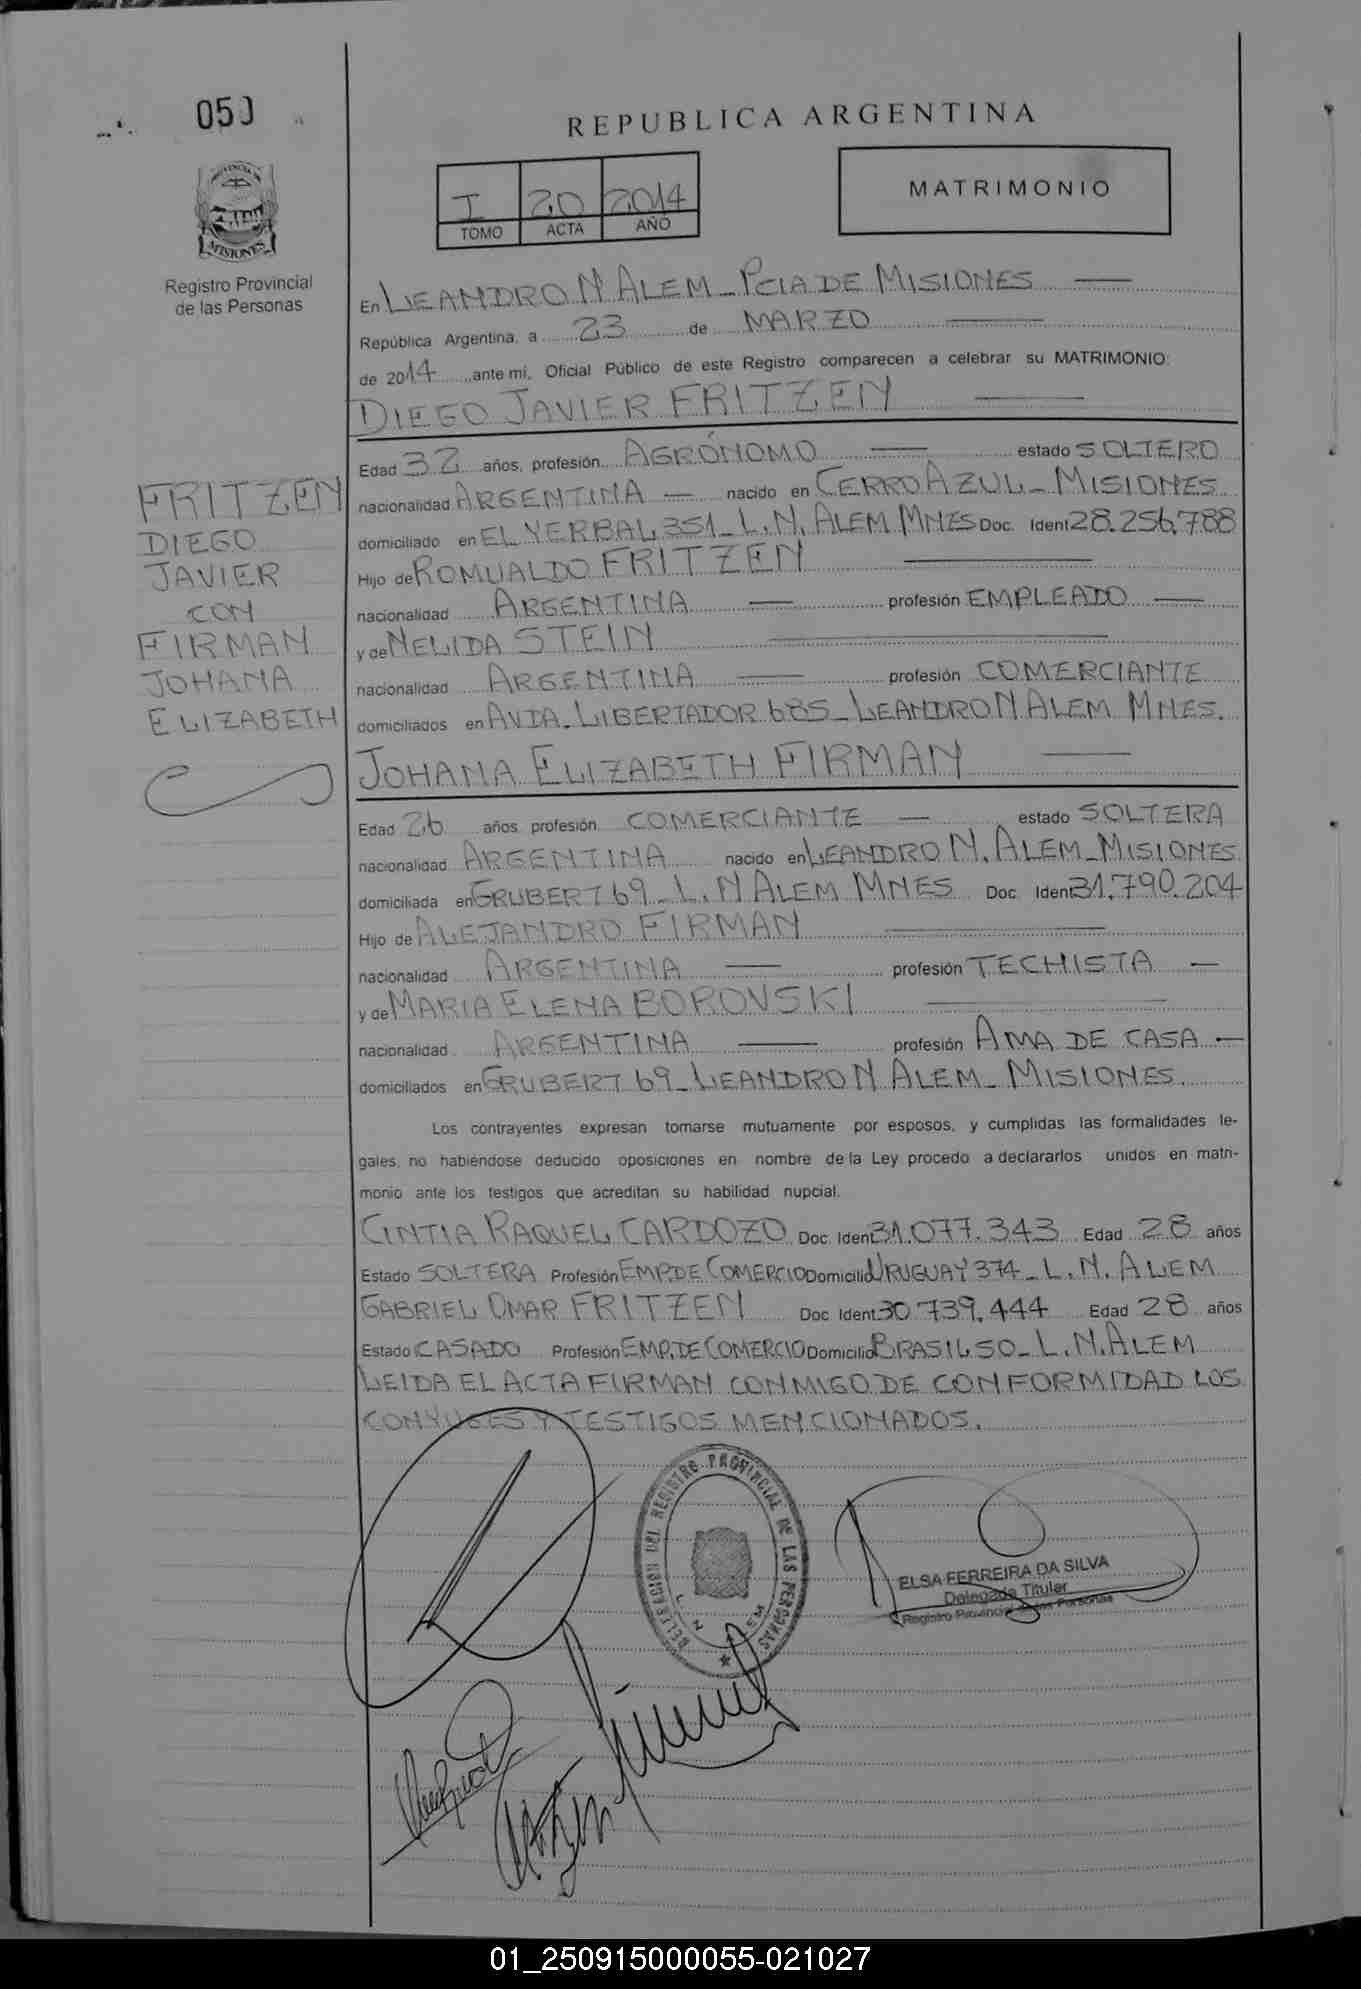 050
PROVINCIA DE
MISIONES
Registro Provincial
de las Personas
REPUBLICA ARGENTINA
I 20 2014
TOMO ACTA AÑO
MATRIMONIO
En LEANDRO N ALEM - PCIA DE MISIONES
República Argentina, a 23 de MARZO
de 2014 ante mi, Oficial Público de este Registro comparecen a celebrar su MATRIMONIO:
DIEGO JAVIER FRITZEN
Edad 32 años, profesión AGRÓNOMO estado SOLTERO
nacionalidad ARGENTINA nacido en CERRO AZUL - MISIONES
domiciliado en EL YERBAL 351 - L. N. ALEM MNES Doc. Ident 28.256.788
Hijo de ROMUALDO FRITZEN
nacionalidad ARGENTINA profesión EMPLEADO
y de NELIDA STEIN
nacionalidad ARGENTINA profesión COMERCIANTE
domiciliados en AVDA. LIBERTADOR 685 - LEANDRO N ALEM MNES.
FRITZEN
DIEGO
JAVIER
CON
FIRMAN
JOHANA
ELIZABETH
JOHANA ELIZABETH FIRMAN
Edad 26 años profesión COMERCIANTE estado SOLTERA
nacionalidad ARGENTINA nacido en LEANDRO N. ALEM - MISIONES
domiciliada en GRUBERT 69 - L. N ALEM MNES Doc. Ident 31.790.204
Hijo de ALEJANDRO FIRMAN
nacionalidad ARGENTINA profesión TECHISTA
y de MARIA ELENA BOROVSKI
nacionalidad ARGENTINA profesión AMA DE CASA
domiciliados en GRUBERT 69 - LEANDRO N ALEM - MISIONES
Los contrayentes expresan tomarse mutuamente por esposos, y cumplidas las formalidades le-
gales, no habiéndose deducido oposiciones en nombre de la Ley procedo a declararlos unidos en matri-
monio ante los testigos que acreditan su habilidad nupcial.
CINTIA RAQUEL CARDOZO Doc. Ident 31.077.343 Edad 28 años
Estado SOLTERA Profesión EMP. DE COMERCIO Domicilio URUGUAY 374 - L. N. ALEM
GABRIEL OMAR FRITZEN Doc Ident 30 739.444 Edad 28 años
Estado CASADO Profesión EMP. DE COMERCIO Domicilio BRASIL 50 - L. N. ALEM
LEIDA EL ACTA FIRMAN CONMIGO DE CONFORMIDAD LOS
CONYUGES Y TESTIGOS MENCIONADOS.
DELEGACION DEL REGISTRO PROVINCIAL DE LAS PERSONAS
ELSA FERREIRA DA SILVA
Delegada Titular
Registro Provincial de las Personas
01_250915000055-021027